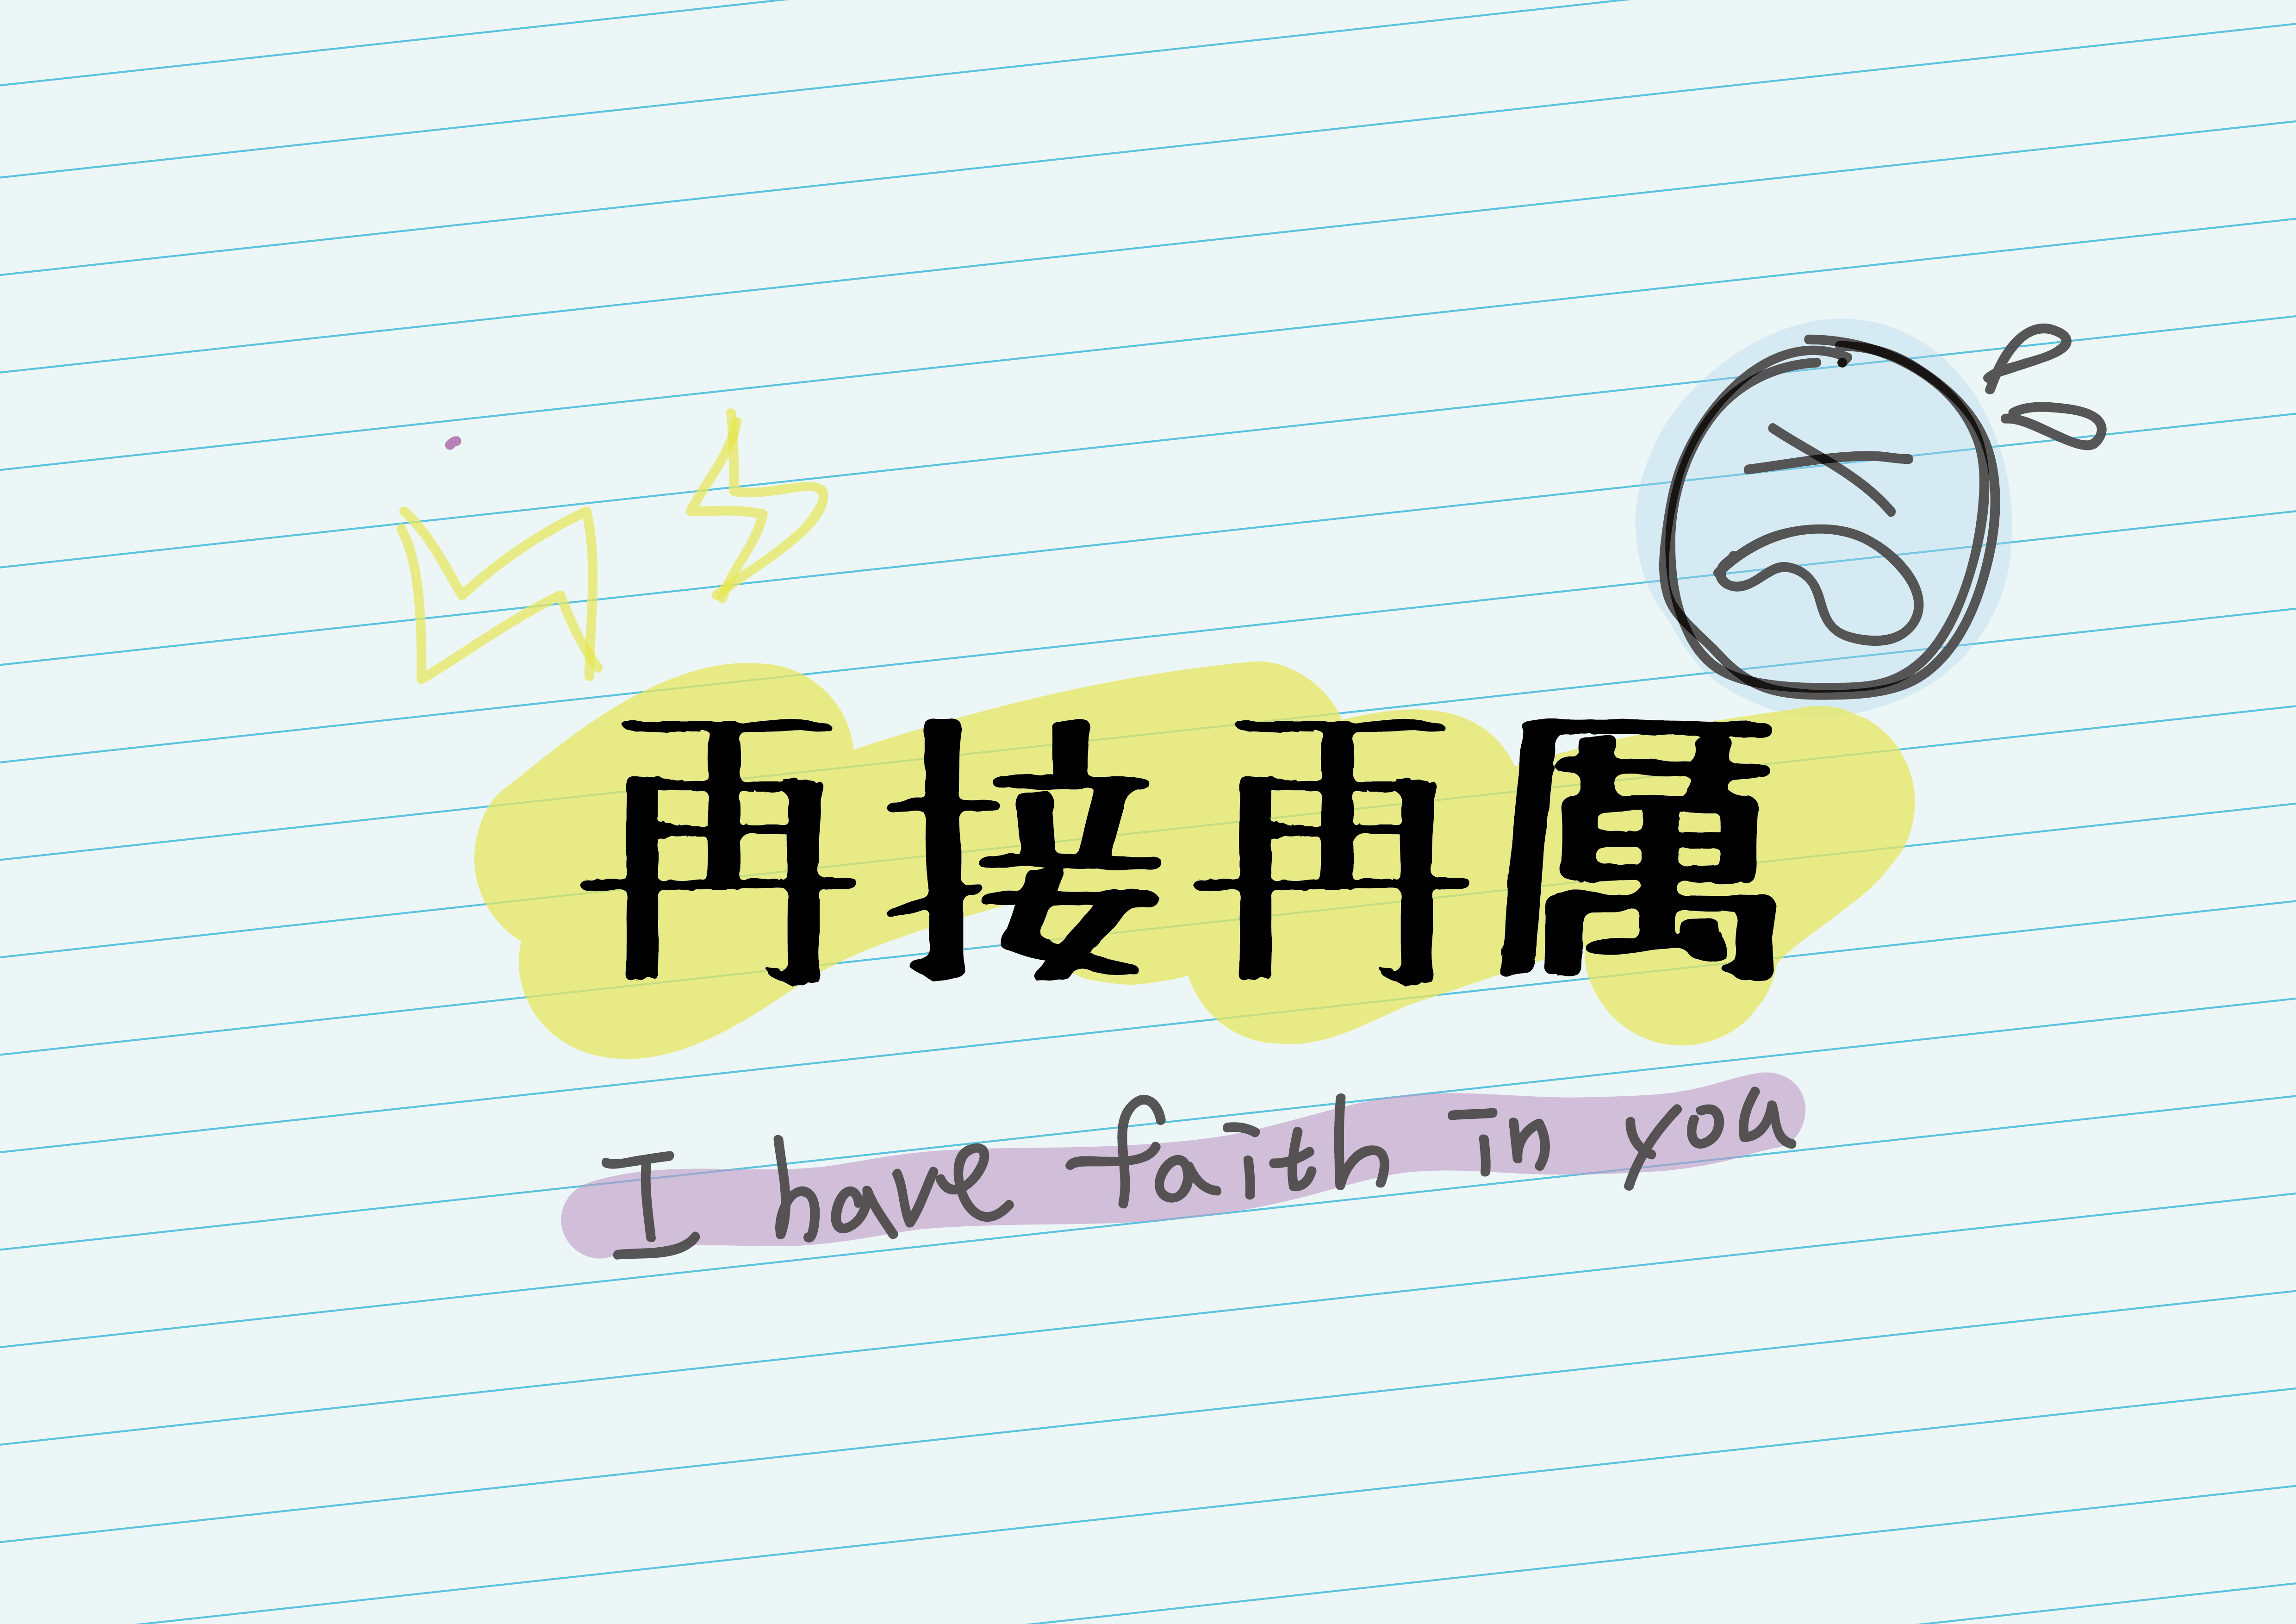 再接再厲
I have faith in you